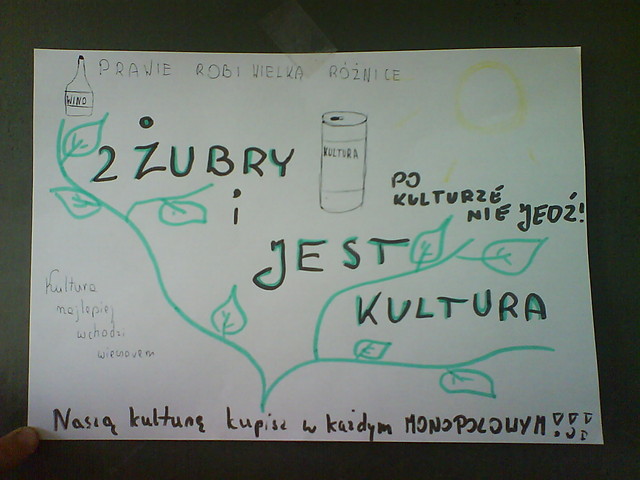 PRAWIE ROBI WIELKA RÓŻNICE
WINO
2 ŻUBRY
i
JEST
KULTURA
KULTURA
PO
KULTURZE
NIE JEDŹ!
Kultura
najlepiej
wchodzi
wieczorem
Naszą kulturę kupisz w każdym MONOPOLOWYM!!!